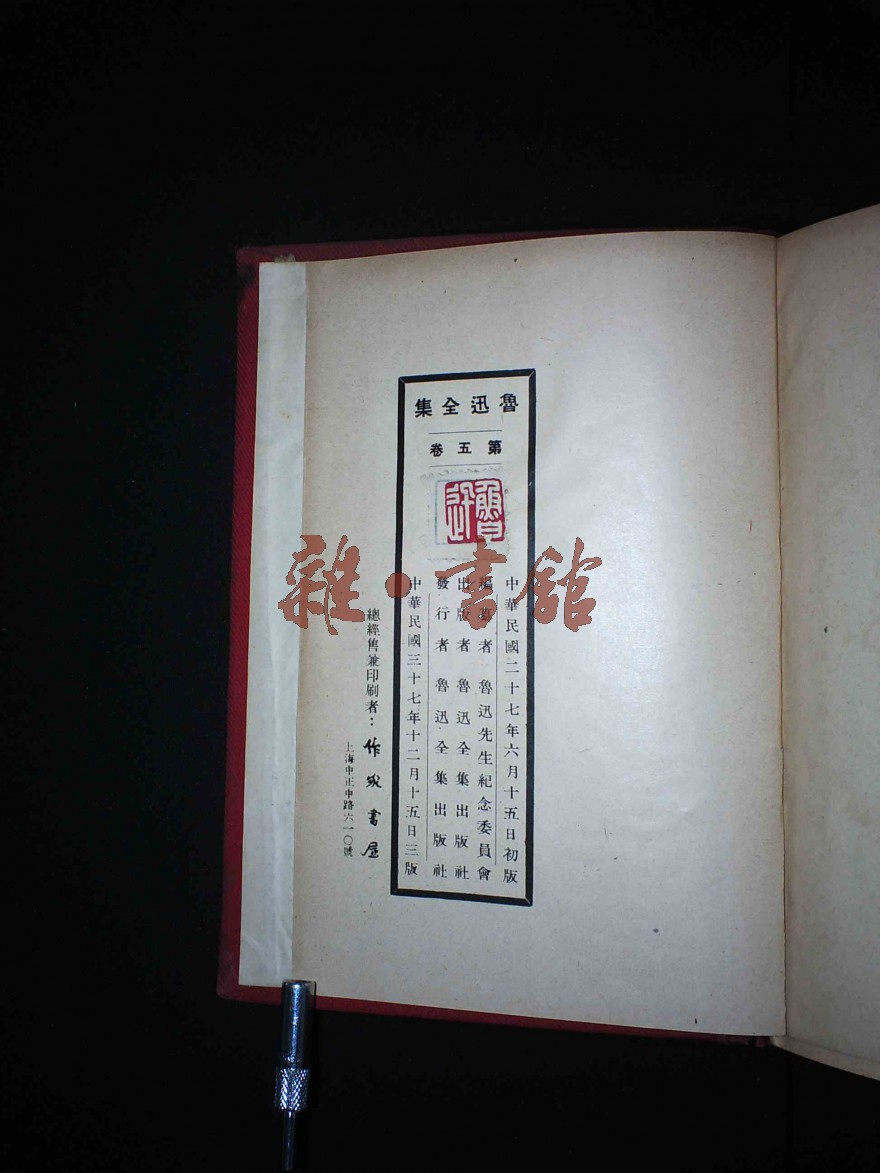 魯迅全集
第五卷
魯迅
中華民國二十七年六月十五日初版
編纂者 魯迅先生紀念委員會
出版者 魯迅全集出版社
發行者 魯迅全集出版社
中華民國三十七年十二月十五日三版
總經售兼印刷者：作家書屋
上海中正中路六一〇號
雜·書館